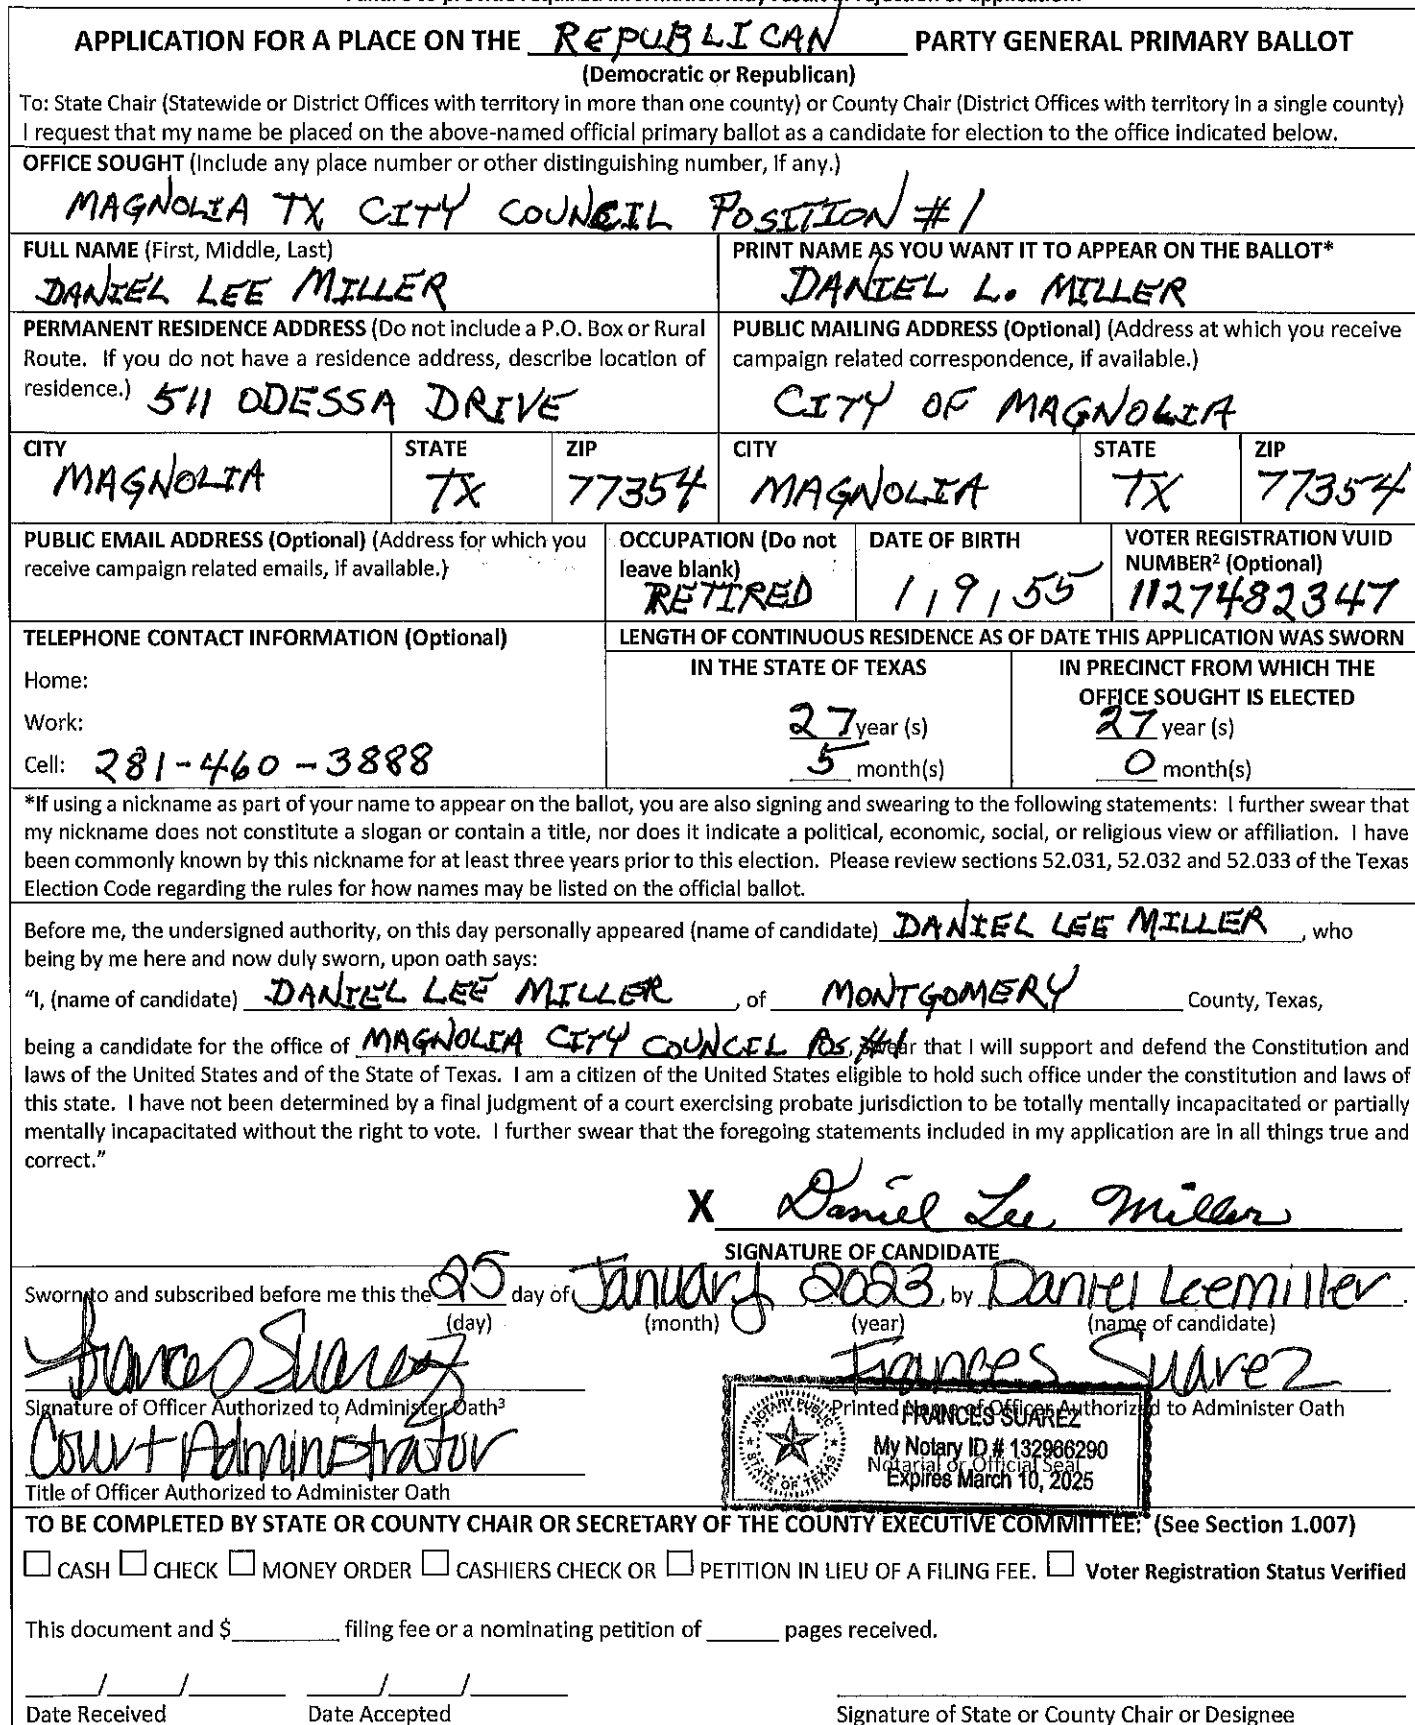 APPLICATION FOR A PLACE ON THE REPUBLICAN PARTY GENERAL PRIMARY BALLOT
(Democratic or Republican)
To: State Chair (Statewide or District Offices with territory in more than one county) or County Chair (District Offices with territory in a single county)
I request that my name be placed on the above-named official primary ballot as a candidate for election to the office indicated below.
OFFICE SOUGHT (Include any place number or other distinguishing number, if any.)
MAGNOLIA TX CITY COUNCIL POSITION #1
FULL NAME (First, Middle, Last)
DANIEL LEE MILLER
PRINT NAME AS YOU WANT IT TO APPEAR ON THE BALLOT*
DANIEL L. MILLER
PERMANENT RESIDENCE ADDRESS (Do not include a P.O. Box or Rural
Route. If you do not have a residence address, describe location of
residence.) 511 ODESSA DRIVE
PUBLIC MAILING ADDRESS (Optional) (Address at which you receive
campaign related correspondence, if available.)
CITY OF MAGNOLIA
CITY STATE ZIP CITY STATE ZIP
MAGNOLIA TX 77354 MAGNOLIA TX 77354
PUBLIC EMAIL ADDRESS (Optional) (Address for which you
receive campaign related emails, if available.)
OCCUPATION (Do not
leave blank)
RETIRED
DATE OF BIRTH
1 / 9 / 55
VOTER REGISTRATION VUID
NUMBER² (Optional)
1127482347
TELEPHONE CONTACT INFORMATION (Optional)
Home:
Work:
Cell: 281-460-3888
LENGTH OF CONTINUOUS RESIDENCE AS OF DATE THIS APPLICATION WAS SWORN
IN THE STATE OF TEXAS
27 year (s)
5 month(s)
IN PRECINCT FROM WHICH THE
OFFICE SOUGHT IS ELECTED
27 year (s)
0 month(s)
*If using a nickname as part of your name to appear on the ballot, you are also signing and swearing to the following statements: I further swear that
my nickname does not constitute a slogan or contain a title, nor does it indicate a political, economic, social, or religious view or affiliation. I have
been commonly known by this nickname for at least three years prior to this election. Please review sections 52.031, 52.032 and 52.033 of the Texas
Election Code regarding the rules for how names may be listed on the official ballot.
Before me, the undersigned authority, on this day personally appeared (name of candidate) DANIEL LEE MILLER, who
being by me here and now duly sworn, upon oath says:
"I, (name of candidate) DANIEL LEE MILLER, of MONTGOMERY County, Texas,
being a candidate for the office of MAGNOLIA CITY COUNCIL POS, #1 swear that I will support and defend the Constitution and
laws of the United States and of the State of Texas. I am a citizen of the United States eligible to hold such office under the constitution and laws of
this state. I have not been determined by a final judgment of a court exercising probate jurisdiction to be totally mentally incapacitated or partially
mentally incapacitated without the right to vote. I further swear that the foregoing statements included in my application are in all things true and
correct."
X Daniel Lee Miller
SIGNATURE OF CANDIDATE
Sworn to and subscribed before me this the 25 day of January, 2023, by Daniel Leemiller.
(day) (month) (year) (name of candidate)
Frances Suarez Frances Suarez
Signature of Officer Authorized to Administer Oath³
Printed Name of Officer Authorized to Administer Oath
Court Administrator
Title of Officer Authorized to Administer Oath
Notarial or Official Seal
NOTARY PUBLIC
STATE OF TEXAS
FRANCES SUAREZ
My Notary ID # 132966290
Expires March 10, 2025
TO BE COMPLETED BY STATE OR COUNTY CHAIR OR SECRETARY OF THE COUNTY EXECUTIVE COMMITTEE: (See Section 1.007)
CASH CHECK MONEY ORDER CASHIERS CHECK OR PETITION IN LIEU OF A FILING FEE. Voter Registration Status Verified
This document and $ filing fee or a nominating petition of pages received.
Date Received Date Accepted Signature of State or County Chair or Designee